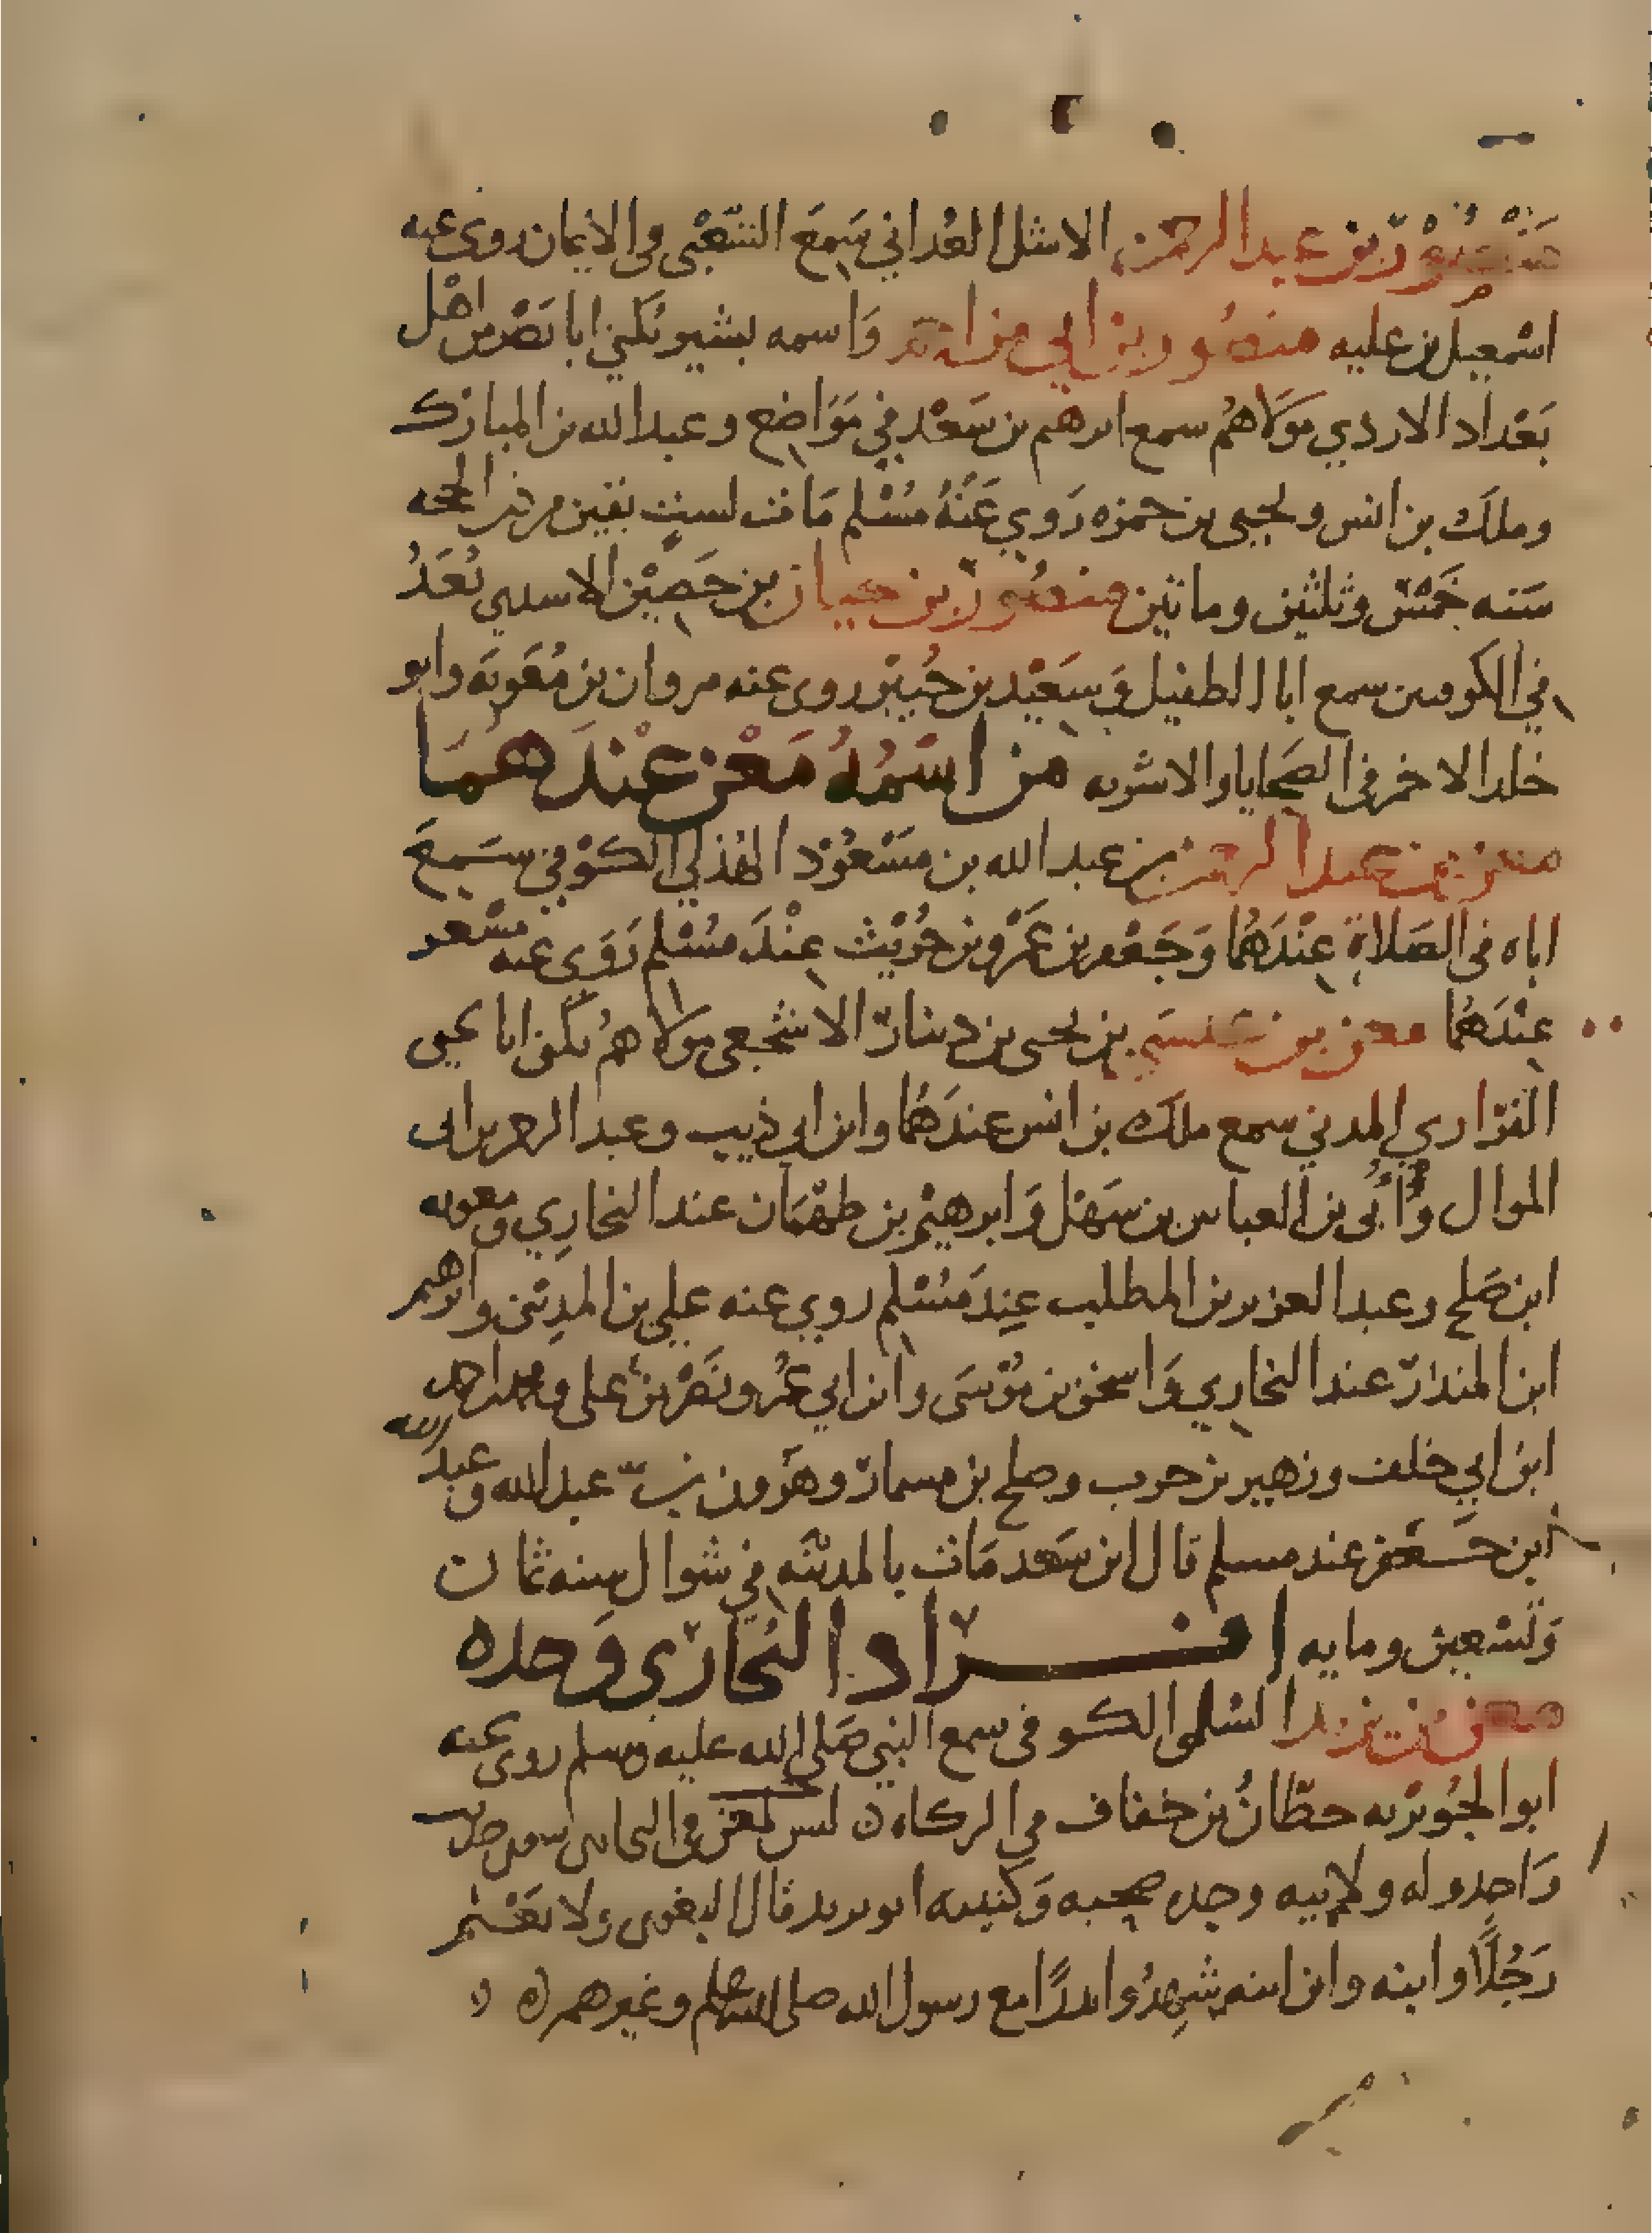 مَنْصُوْر بن عبد الرحمن الاشل الغداني سَمِعَ الشعْبي في الايمان روى عنه
اسمعيل بن عليه منصُور بن ابي مزاحم وَاسمه بشير يكني ابا نَصْر من اهْل
بَغْداد الازدي مَولاهُم سمع ابرهم بن سَعْد في مَوَاضِع وعبد الله بن المبارَك
وملك بن انس ويحيى بن حمزه رَوي عَنْهُ مُسْلم مَات لست بقين من ذي الحجه
سَنه خَمْسٍ وثلثين وماتين منصُور بن حيان بن حَصِيْن الاسدي يُعَدُ
في الكوفيين سمع ابا الطفيل وَسَعِيْد بن جُبَيْر روى عنه مروان بن مُعَويَه وابو
خلد الاحمر في الضَحايا والاشربه من اسْمُهُ مَعْن عنْدَهُمَا
معن بن عبد الرحمن بن عبد الله بن مَسْعُوْد الهُذلي الكوْفي سَمِعَ
اباه في الصَلاةِ عِنْدَهُمَا وَجَعْفر بن عَمْرو بن حُرَيْث عِنْدَ مُسْلم رَوَى عنه مسْعر
عِنْدَهُمَا معن بن عيسَى بن يحيى بن دينار الاشجعي مولاهُم يكنى ابا يحيى
القزاز المدني سمع ملك بن انس عندَهُمَا وابن ابي ذيب وعبد الرحمن بن ابي
الموال وَأُبَيّ بن العباس بن سَهْل وَابرهيْم بن طَهْمَان عند البخارِي ومعويه
ابن صَلح وعبد العزيز بن المطلب عِندَ مُسْلم روي عنه علي بن المدِيني وابرهيم
ابن المنذر عند البخاري وَاسحق بن مُوْسَى وابن ابي عُمر ونَصْر بن علي ومحمد بن احمد
ابن ابي خلف وزهير بن حرب وصلح بن مسمار وهرُون بن عبد الله وعبد الله
ابن جَعْفر عند مسلم قال ابن سَعد مَات بالمدينَه في شوال سنه ثمان
وَتسْعين ومايه افراد البُخَارِي وَحده
معن بن يزيد السُلمي الكوفي سمع النبي صَلى الله عليه وسلم روى عنه
ابو الجُوَيْريه حطّانُ بن خفاف في الزكاه ليس لمعن في البخاري سوى حديث
وَاحد وله ولابيه وجده صحبه وَكنيته ابو يزيد قال البغوى ولا نعْلم
رَجُلًا وابنه وابن ابنه شهِدُوا بدرًا مع رسول الله صلى الله عليه وسلم غيرهم